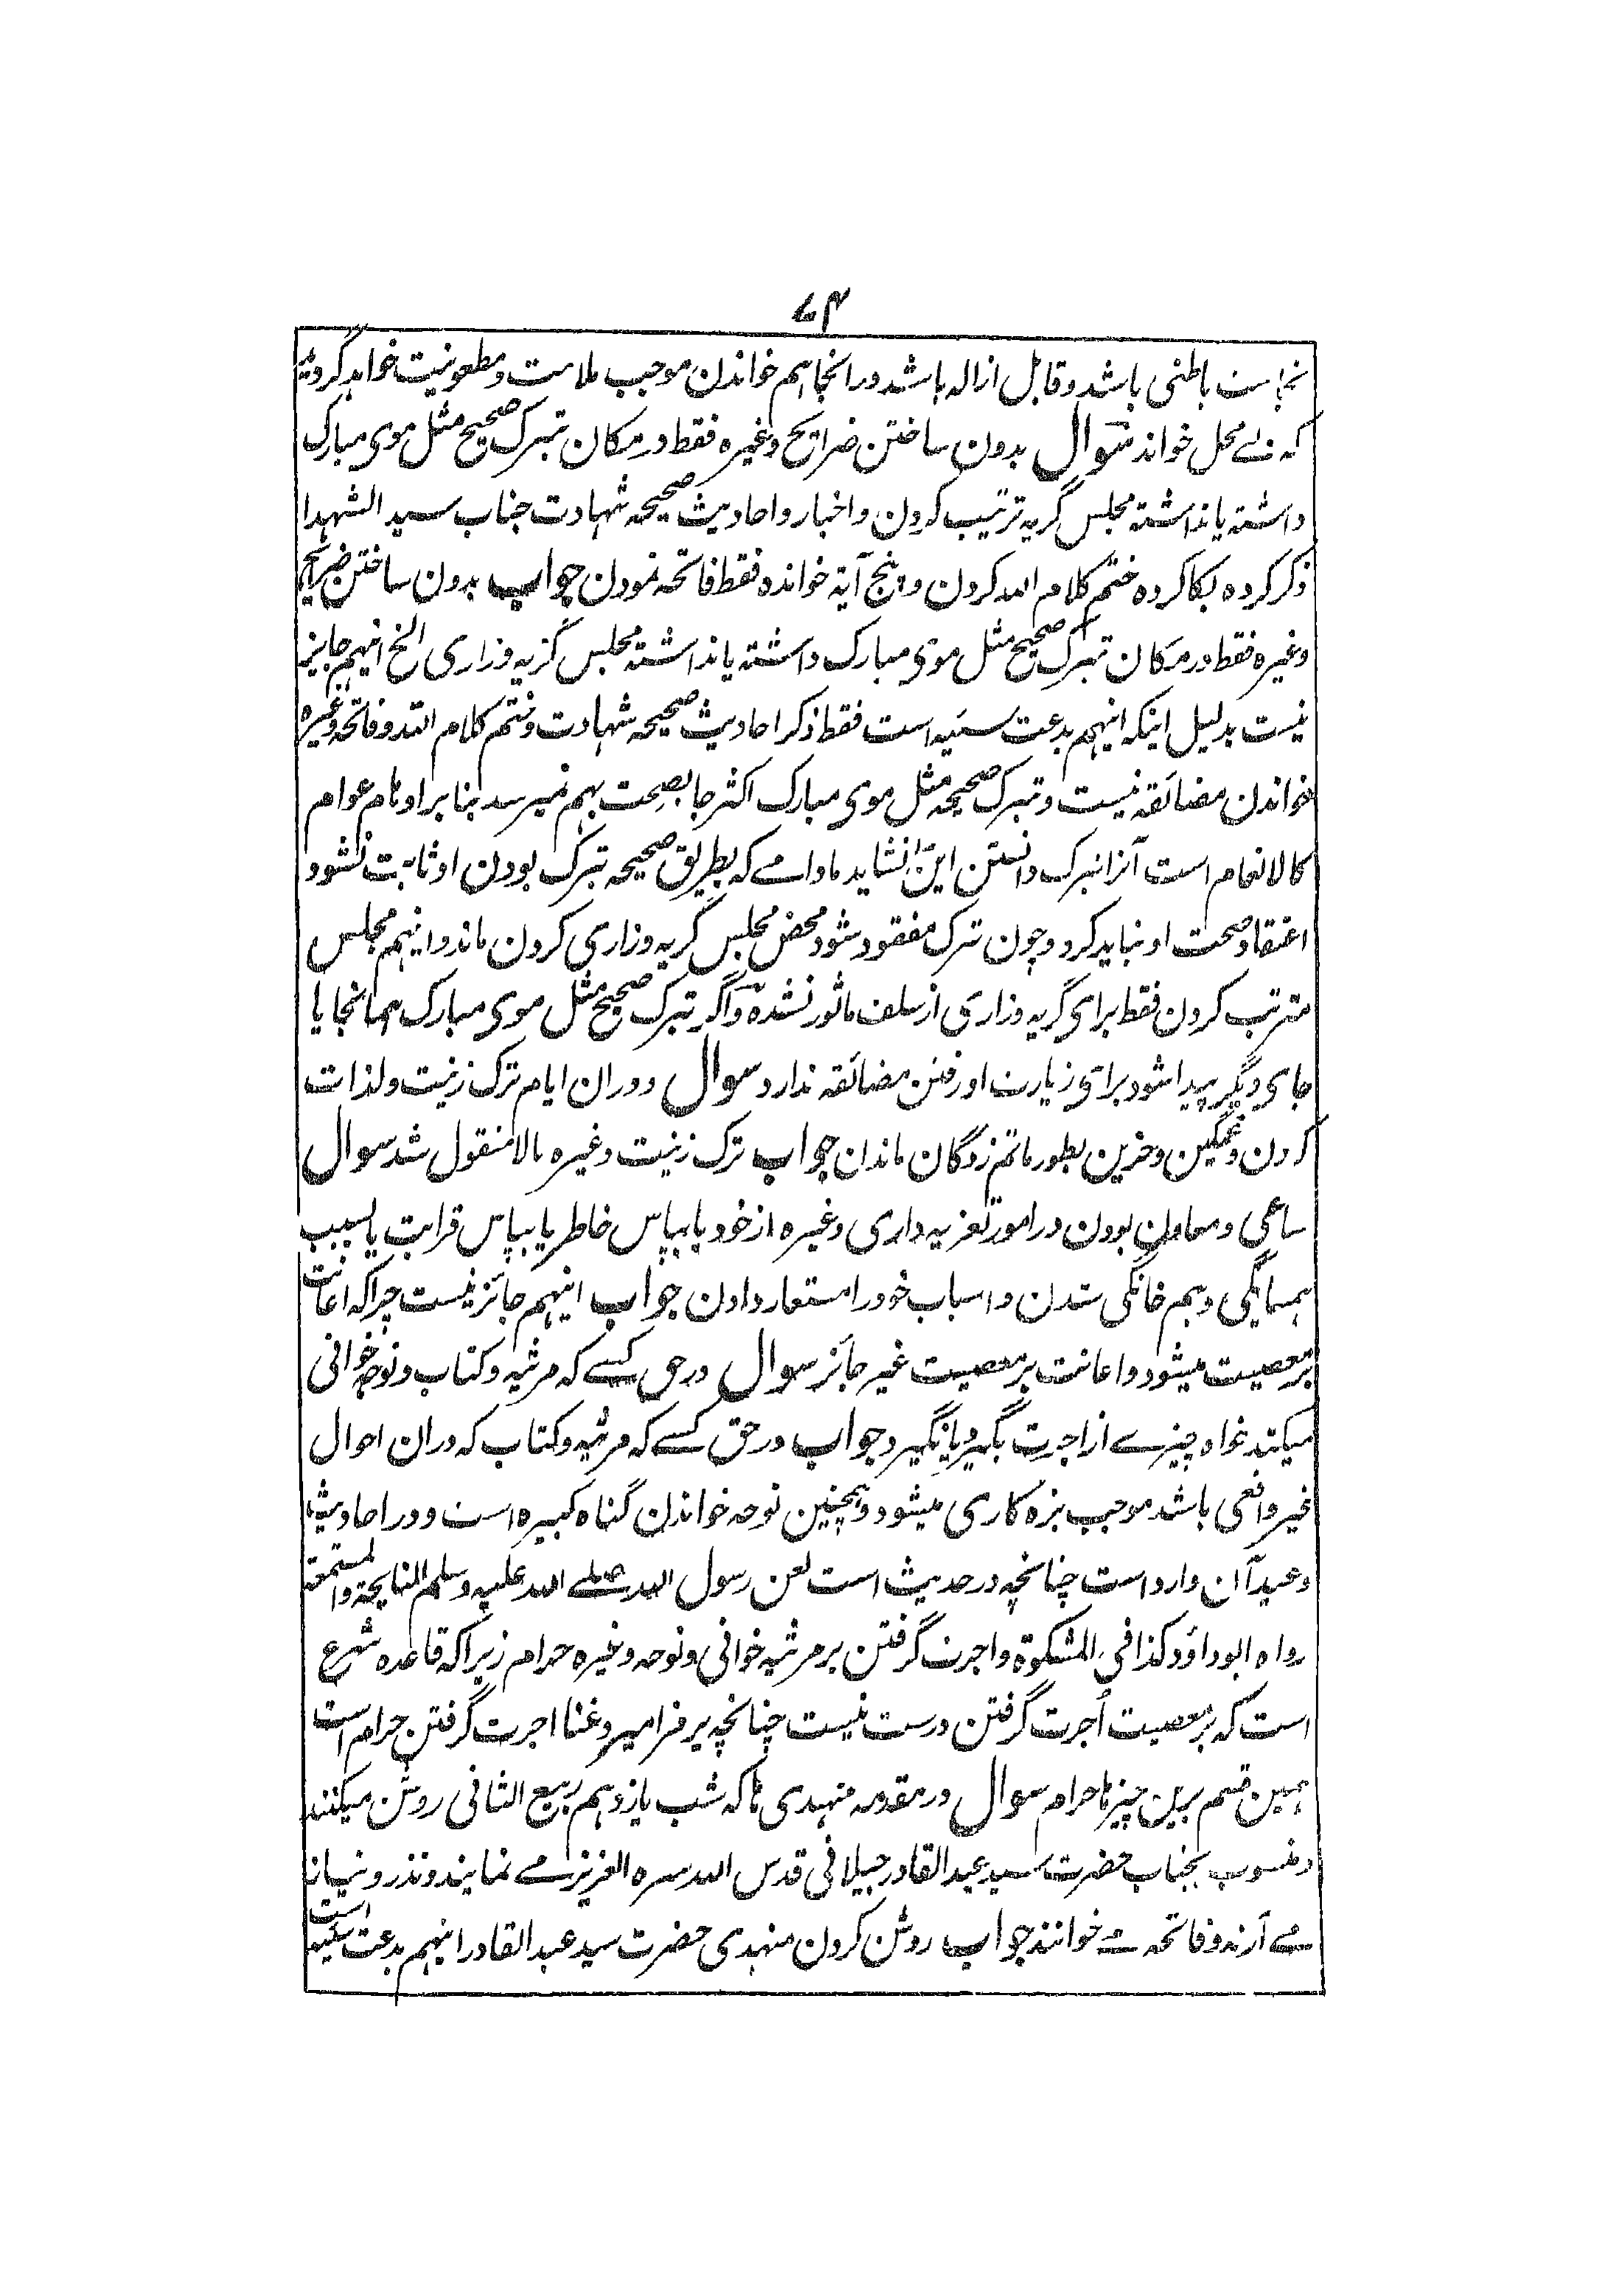 ۷۴
نجاست باطنی باشد و قابل ازاله باشد در انجا هم خواندن موجب ملامت و مطعونیت خواهد گردید
که بے محل خواند سوال بدون ساختن ضرایح وغیره فقط در مکان تبرک صحیح مثل موی مبارک
داشته یا نداشته مجلس گریه ترتیب کردن و اخبار و احادیث صحیحه شهادت جناب سید الشهدا
ذکر کرده بکا کرده ختم کلام الله کردن و پنج آیة خوانده فقط فاتحه نمودن جواب بدون ساختن ضریح
وغیره فقط در مکان تبرک صحیح مثل موی مبارک داشته یا نداشته مجلس گریه وزاری الخ اینهم جایز
نیست بدلیل اینکه اینهم بدعت سئیه است فقط ذکر احادیث صحیحه شهادت و ختم کلام الله و فاتحه وغیره
خواندن مضائقه نیست و تبرک صحیحه مثل موی مبارک اکثر جا بصحت بهم نمیرسد بنا بر اوهام عوام
کالانعام است آنرا تبرک دانستن این را نشاید مادامے که بطریق صحیحه تبرک بودن او ثابت نشود
اعتقاد صحت او نباید کرد و چون تبرک مفقود شود محض مجلس گریه وزاری کردن ماند و اینهم مجلس
مترتب کردن فقط برای گریه وزاری از سلف ماثور نشده و اگر تبرک صحیح مثل موی مبارک همانجا یا
جای دیگر پیدا شود برای زیارت او رفتن مضائقه ندارد سوال و دران ایام ترک زینت ولذات
کردن و غمگین و حزین بطور ماتم زدگان ماندن جواب ترک زینت وغیره بالا منقول شد سوال
ساعی و معاون بودن در امور تعزیه داری وغیره از خود یا بپاس خاطر یا بپاس قرابت یا بسبب
همسایگی و هم خانگی شدن و اسباب خود را مستعار دادن جواب اینهم جائز نیست چراکه اعانت
بر معصیت میشود و اعانت بر معصیت غیر جائز سوال در حق کسے که مرثیه و کتاب و نوحه خوانی
میکند خواه چیزے از اجرت بگیرد یا نگیرد جواب در حق کسے که مرثیه و کتاب که دران احوال
غیر واقعی باشد موجب بزه کاری میشود و همچنین نوحه خواندن گناه کبیره است و در احادیث
وعید آن وارد است چنانچه در حدیث است لعن رسول الله صلے الله علیه وسلم النایحة والمستمعة
رواه ابو داؤد کذا فی المشکوة و اجرت گرفتن بر مرثیه خوانی و نوحه وغیره حرام زیراکه قاعده شرع
است که بر معصیت اُجرت گرفتن درست نیست چنانچه بر مزامیر و غنا اجرت گرفتن حرام است
همین قسم برین چیزها حرام سوال در مقدمه منهدی ها که شب یازدهم ربیع الثانی روشن میکنند
و منسوب بجناب حضرت سید عبد القادر جیلانی قدس الله سره العزیز مے نمایند و نذر و نیاز
مے آرند و فاتحه مے خوانند جواب روشن کردن منهدی حضرت سید عبد القادر اینهم بدعت سئیه است